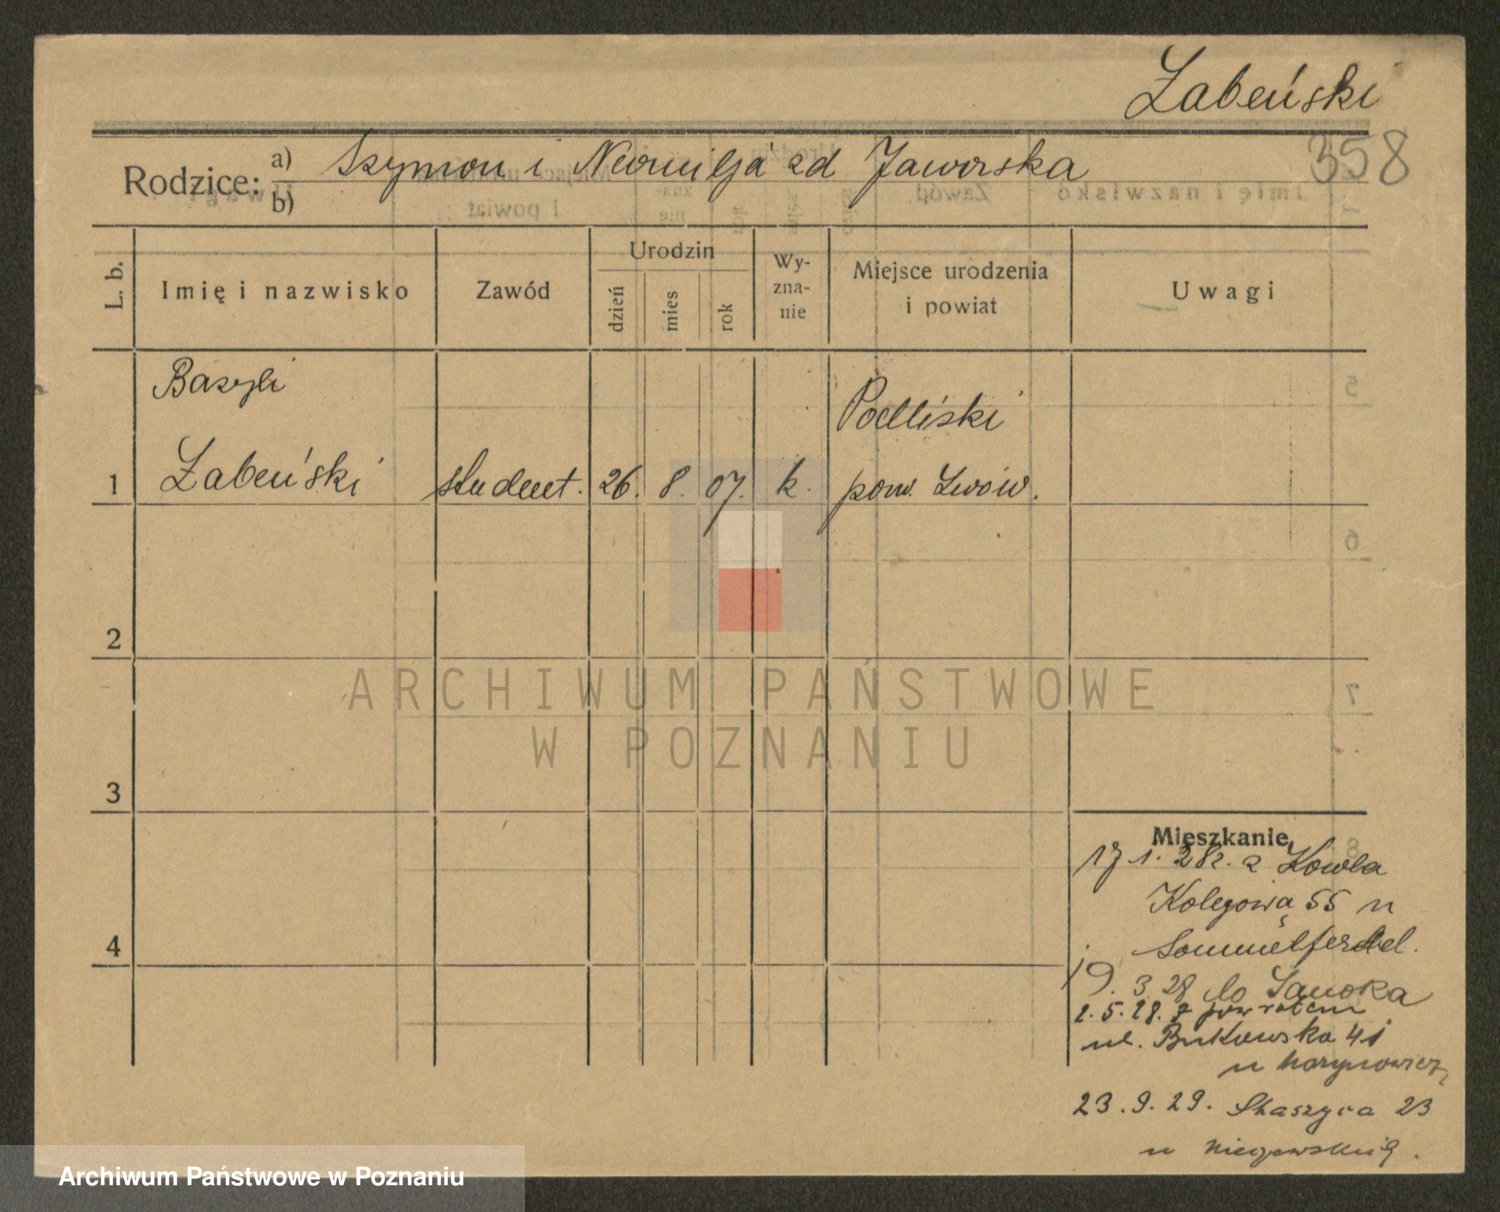 Żabeński
358
Rodzice: a) Szymon i Neomilja zd Jaworska
b)
L. b.
Imię i nazwisko
Zawód
Urodzin
dzień
mies
rok
Wy-
zna-
nie
Miejsce urodzenia
i powiat
Uwagi
Bazyli
Podliski
1 Żabeński student. 26. 8. 07. k. pow. Lwów.
2
3
4
Mieszkanie
17 1. 28r. z Kowla
55 u
19. 3 28 do Sanoka
2. 5. 28. z powrotem
ul. Bukowska 41
u
23. 9. 29. Staszyca 23
u
ARCHIWUM PAŃSTWOWE
W POZNANIU
Archiwum Państwowe w Poznaniu